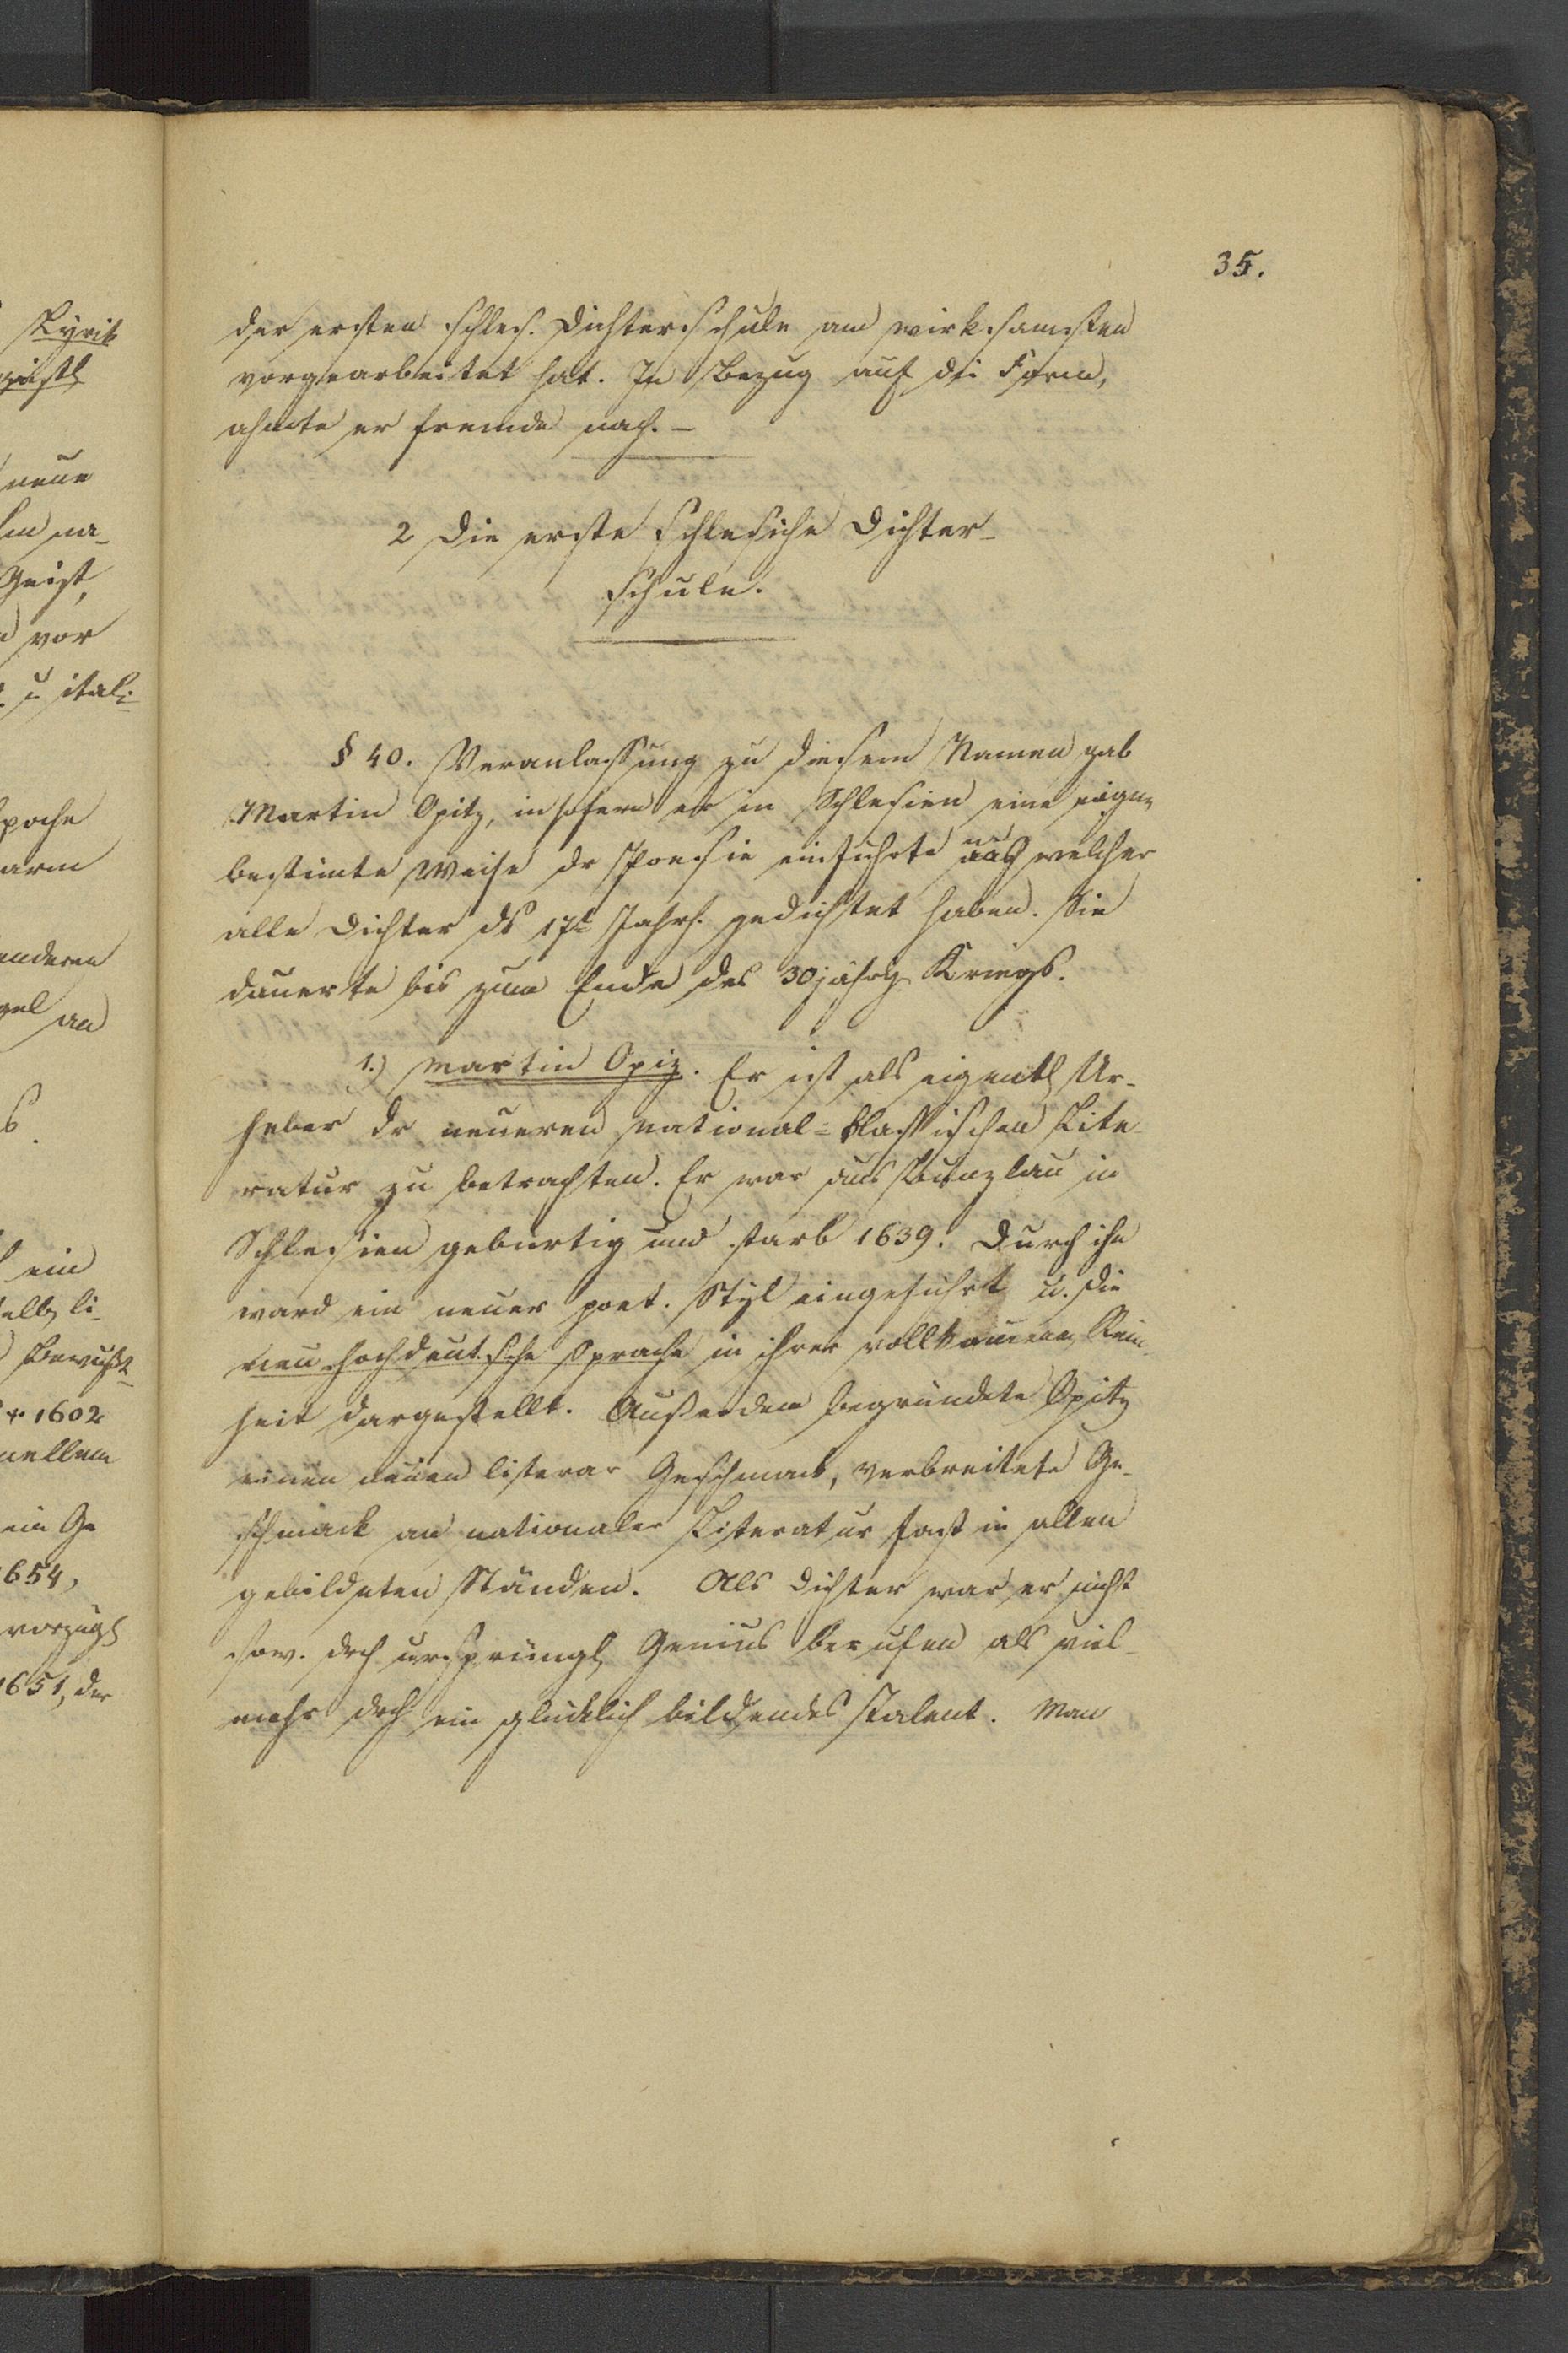 35.
der ersten schles. Dichterschule am wirksamsten
vorgearbeitet hat. In Bezug auf die Form,
ahmte er fremde nach. –
2 Die erste schlesiche Dichter-
schule.
§ 40. Veranlassung zu diesem Namen gab
Martin Opitz, insofern er in Schlesien eine eigne
bestimte Weise dr Poesie einführte nach welcher
alle Dichter ds 17t Jahrh. gedichtet haben. Sie
dauerte bis zum Ende des 30jährg Kriegs.
1.) Martin Opiz. Er ist als eigentl Ur-
heber dr neueren national-klassischen Lite-
ratur zu betrachten. Er war aus Bunzlau in
Schlesien gebürtig und starb 1639. Durch ihn
ward ein neuer poet. Styl eingeführt u. die
neu hochdeutsche Sprache in ihrer vollkomenen Rein-
heit dargestellt. Außerdem begründete Opitz
einen neuen literar Geschmack, verbreitete Ge-
schmack an nationaler Literatur fast in allen
gebildeten Ständen. Als Dichter war er nicht
sow. dch ursprüngl Genius berufen als viel-
mehr dch ein glücklich bildendes Talent. Man
Lyrik
geistl
neue
Geist,
vor
u itali-
poche
arm
anderen
gel an
ein
selb li-
Bewußt-
+ 1602
ein Ge
1654,
vorzügl
1651, der